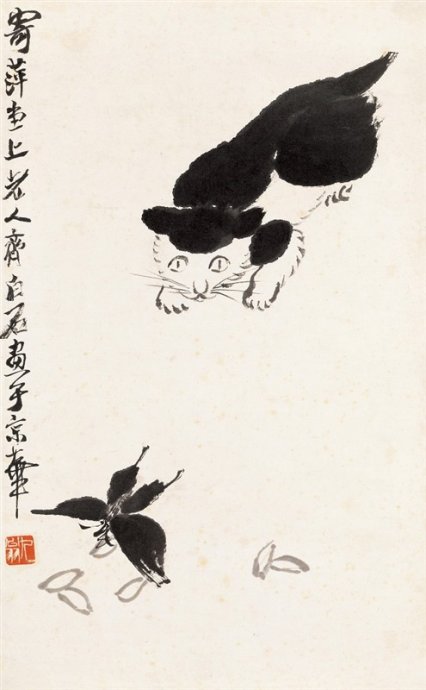 寄萍堂上老人齊白石畫于京華